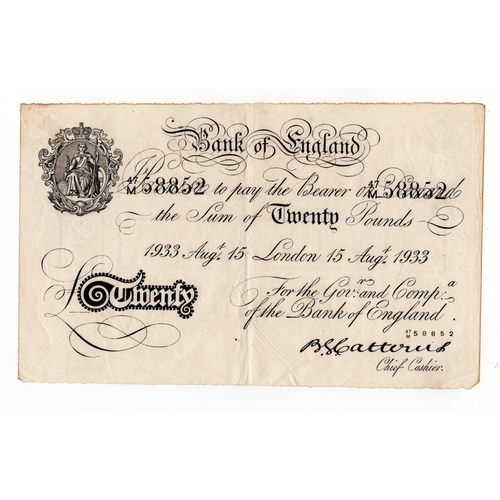 Bank of England
47/M 58852 to pay the Bearer on 47/M 58852
the Sum of Twenty Pounds
1933 Augt. 15 London 15 Augt. 1933
For the Govr. and Compa.
£ Twenty of the Bank of England.
47/M 58852
B.G. Catterns
Chief Cashier.